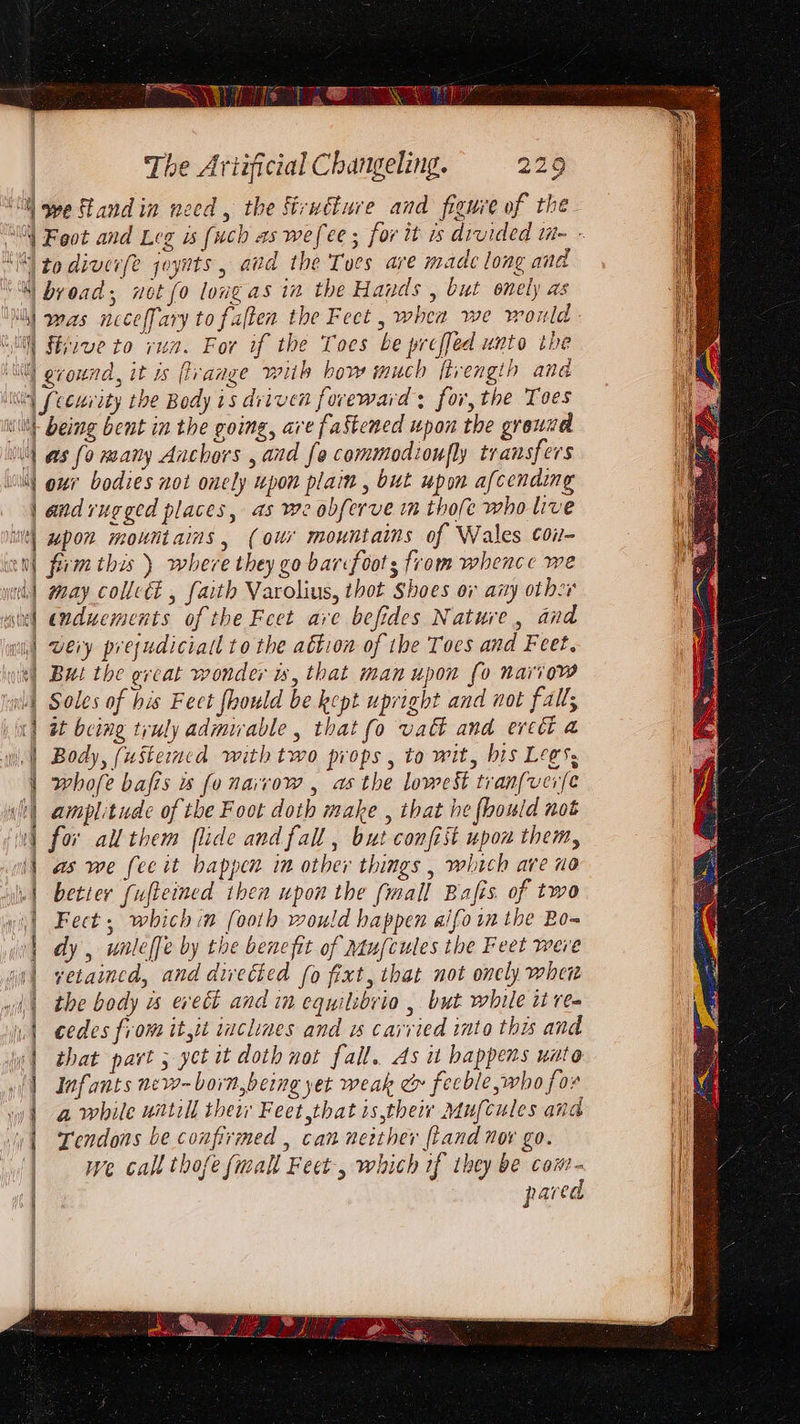 The Artificial Changeling. 229
we ſtand in need, the Structure and figure of the
Foot and Leg is ſuch as we ſee; for it is divided in-
to diverſe joynts, and the Toes are made long and
broad; not ſo long as in the Hands, but onely as
was neceſſary to faſten the Feet, when we would
ſtrive to run. For if the Toes be preſſed unto the
ground, it is ſtrange with how much ſtrength and
ſecurity the Body is driven foreward; for, the Toes
being bent in the going, are faſtened upon the ground
as ſo many Anchors, and ſo commodiouſly transfers
our bodies not onely upon plain, but upon aſcending
and rugged places, as we obſerve in thoſe who live
upon mountains, (our mountains of Wales con-
firm this) where they go barefoot; from whence we
may collect, ſaith Varolius, thot Shoes or any other
enduements of the Feet are beſides Nature, and
very prejudiciall to the action of the Toes and Feet.
But the great wonder is, that man upon ſo narrow
Soles of his Feet ſhould be kept upright and not fall;
it being truly admirable, that ſo vaſt and erect a
Body, ſuſteined with two props, to wit, his Legs,
whoſe baſis is ſo narrow, as the loweſt tranſverſe
amplitude of the Foot doth make, that he ſhould not
for all them ſlide and fall, but conſiſt upon them,
as we ſee it happen in other things, which are no
better ſuſteined then upon the ſmall Baſis of two
Feet; which in ſooth would happen alſo in the Bo-
dy, unleſſe by the benefit of Muſcules the Feet were
retained, and directed ſo fixt, that not onely when
the body is erect and in equilibrio, but while it re-
cedes from it, it inclines and is carried into this and
that part; yet it doth not fall. As it happens unto
Infants new-born, being yet weak & feeble, who for
a while untill their Feet, that is, their Muſcules and
Tendons be confirmed, can neither ſtand nor go.
We call thoſe ſmall Feet, which if they be com-
pared